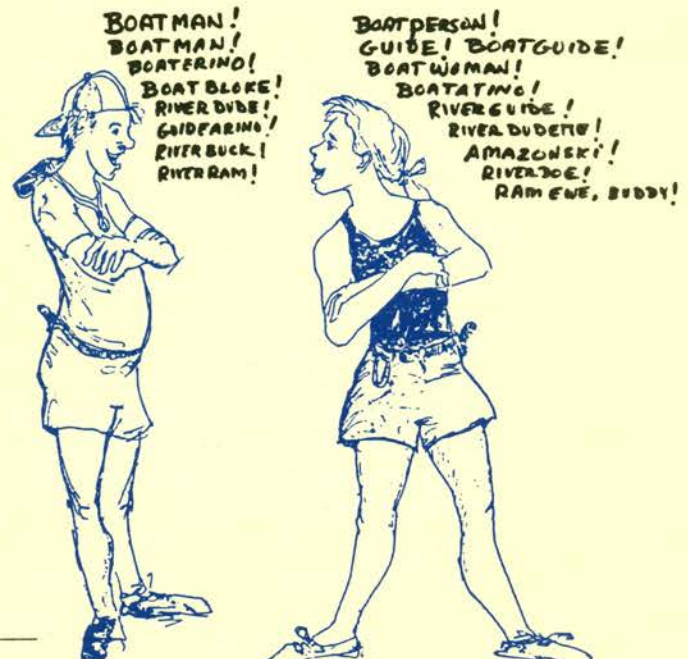 BOATMAN!
BOATMAN!
BOATERINO!
BOAT BLOKE!
RIVER DUDE!
GUIDEARINO!
RIVER BUCK!
RIVER RAM!
BOATPERSON!
GUIDE! BOATGUIDE!
BOATWOMAN!
BOATATINO!
RIVERGUIDE!
RIVER DUDETTE!
AMAZONSKI!
RIVERDOE!
RAM EWE, BUDDY!